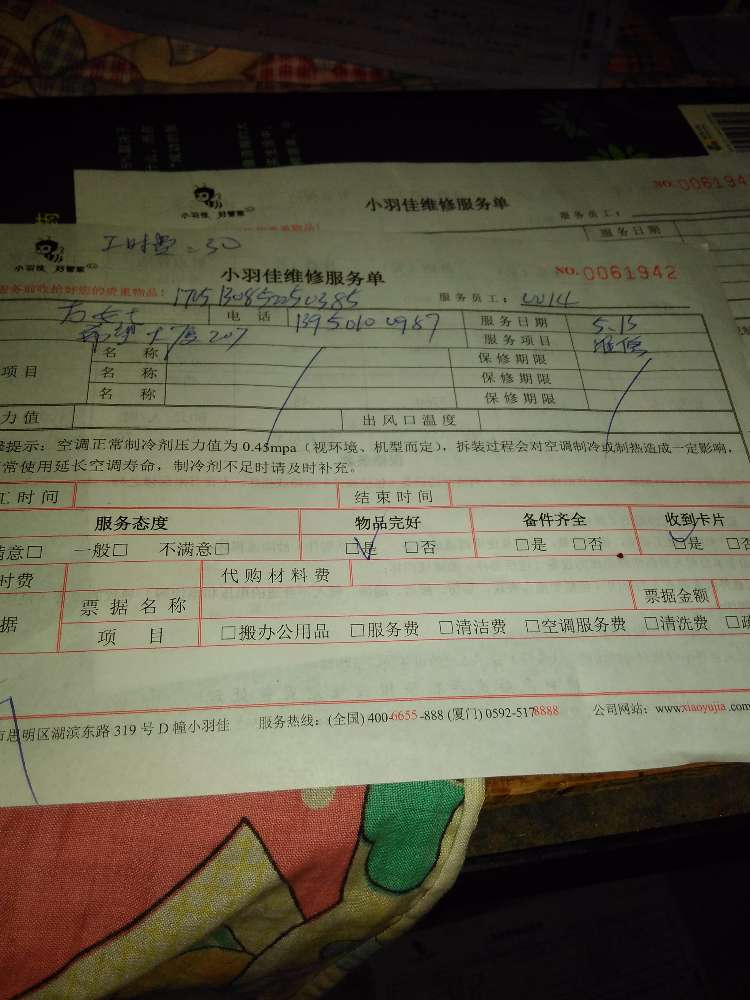 小羽佳 好管家
小羽佳维修服务单
NO.
服务员工：
服务日期
贵重物品！
工时费=30
小羽佳 好管家
小羽佳维修服务单
NO.0061942
服务前收拾好您的贵重物品！
服务员工：
电 话
服务日期 5.13
207
服务项目 维修
项目
名 称
保修期限
名 称
保修期限
名 称
保修期限
力值
出风口温度
提示：空调正常制冷剂压力值为0.45mpa（视环境、机型而定），拆装过程会对空调制冷或制热造成一定影响，
常使用延长空调寿命，制冷剂不足时请及时补充。
工时间
结束时间
服务态度
物品完好
备件齐全
收到卡片
满意□ 一般□ 不满意□
□是 □否
□是 □否
□是 □否
时费
代购材料费
据
票据名称
票据金额
项 目
□搬办公用品 □服务费 □清洁费 □空调服务费 □清洗费 □疏
市思明区湖滨东路319号D幢小羽佳
服务热线：(全国) 400-6655-888 (厦门) 0592-5178888
公司网站：www.xiaoyujia.com